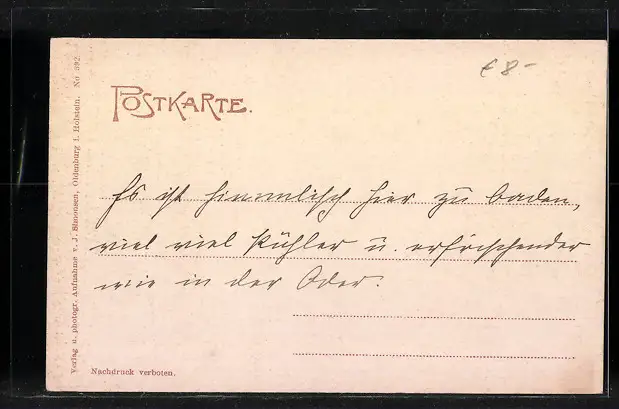 € 8-
POSTKARTE.
Es ist himmlisch hier zu baden,
viel viel kühler u. erfrischender
wie in der Oder.
Nachdruck verboten.
Verlag u. photogr. Aufnahme v. J. Simonsen, Oldenburg i. Holstein. No 392